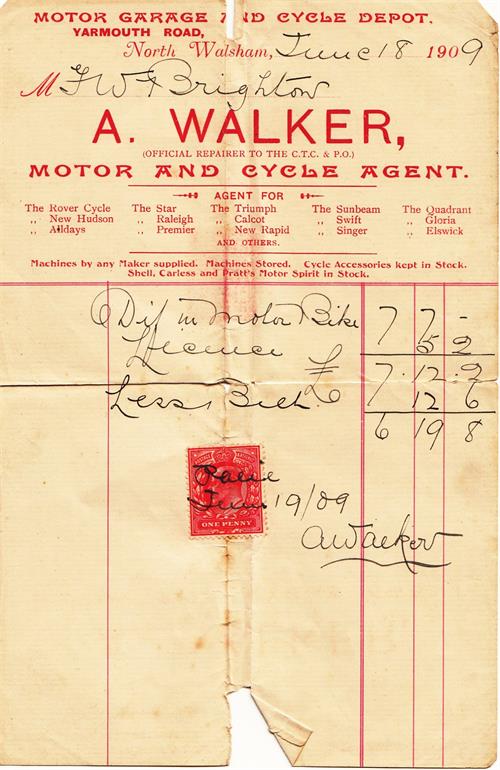 MOTOR GARAGE AND CYCLE DEPOT.
YARMOUTH ROAD,
North Walsham, June 18 1909
M F W Brighton
A. WALKER,
(OFFICIAL REPAIRER TO THE C.T.C. & P.O.)
MOTOR AND CYCLE AGENT.
AGENT FOR
The Rover Cycle The Star The Triumph The Sunbeam The Quadrant
,, New Hudson ,, Raleigh ,, Calcot ,, Swift ,, Gloria
,, Alldays ,, Premier ,, New Rapid ,, Singer ,, Elswick
AND OTHERS.
Machines by any Maker supplied. Machines Stored. Cycle Accessories kept in Stock.
Shell, Carless and Pratt's Motor Spirit in Stock.
Dif in Motor Bike 7 7 -
Licence 5 2
£ 7 . 12 . 2
Less Bill 12 6
6 19 8
POSTAGE REVENUE
Paid
June 19/09
ONE PENNY
A Walker